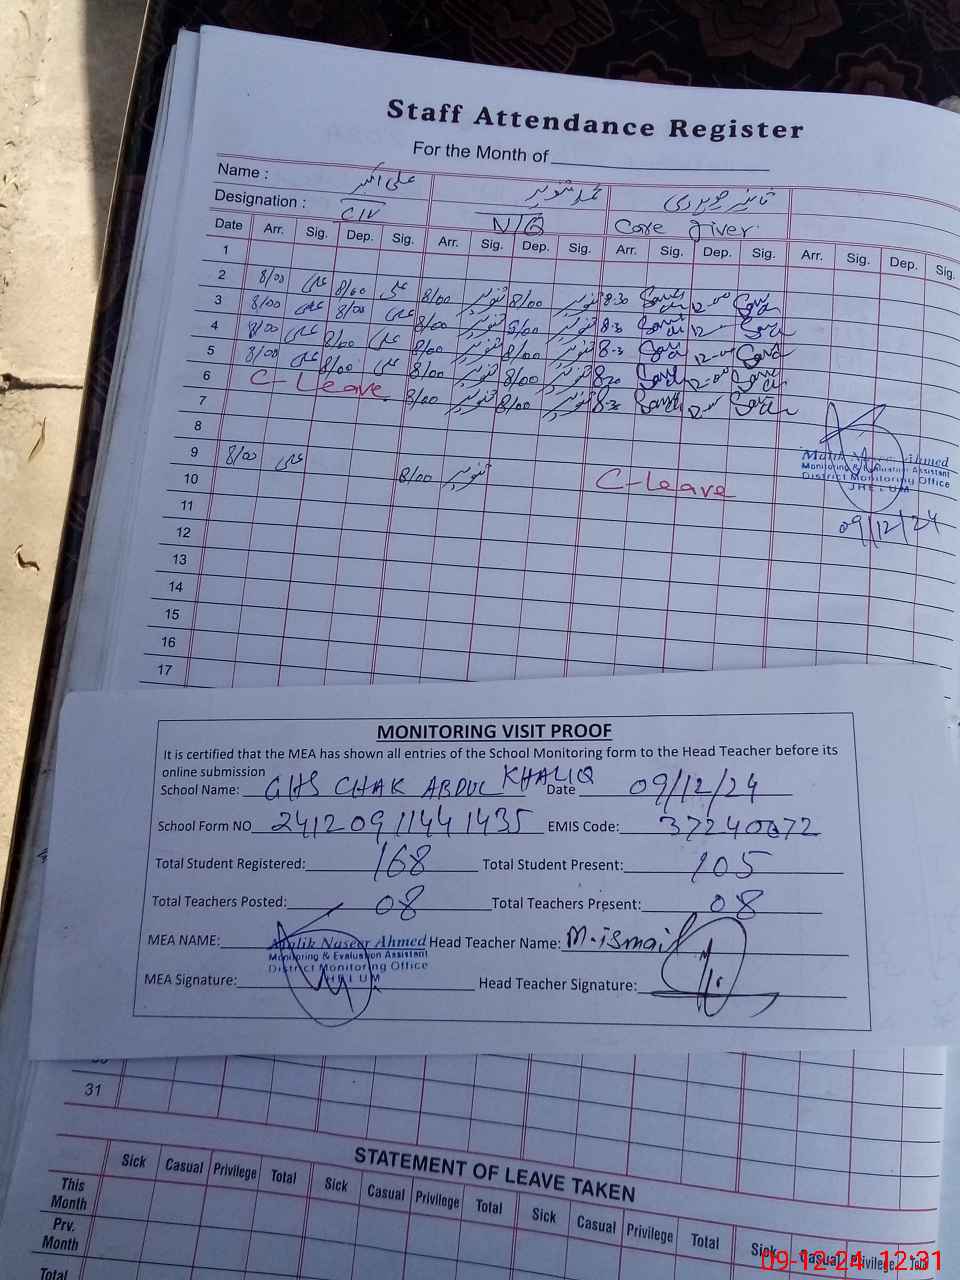 Staff Attendance Register
For the Month of
Name : علی اکبر محمد تنویر
Designation : C/IV N/Q Care giver
Date Arr. Sig. Dep. Sig. Arr. Sig. Dep. Sig. Arr. Sig. Dep. Sig. Arr. Sig. Dep. Sig.
1
2 8/00 علی 8/00 علی 8/00 تنویر 8/00 تنویر 8-30 12-00
3 8/00 علی 8/00 علی 8/00 تنویر 8/00 تنویر 8-30 12-00
4 8/00 علی 8/00 علی 8/00 تنویر 8/00 تنویر 8-30 12-00
5 8/00 علی 8/00 علی 8/00 تنویر 8/00 تنویر 8-30 12-00
6 C-Leave 8/00 تنویر 8/00 تنویر 8-30 12-00
7
8
9 8/00 علی 8/00 تنویر C-Leave
10
11
12
13
14
15
16
17
Malik Naseer Ahmed
Monitoring & Evaluation Assistant
District Monitoring Office
JHELUM
09/12/24
MONITORING VISIT PROOF
It is certified that the MEA has shown all entries of the School Monitoring form to the Head Teacher before its
online submission
School Name: GHS CHAK ABDUL KHALIQ Date 09/12/24
School Form NO 24120911441435 EMIS Code: 37240072
Total Student Registered: 168 Total Student Present: 105
Total Teachers Posted: 08 Total Teachers Present: 08
MEA NAME: Malik Naseer Ahmed Head Teacher Name: M.ismail
Monitoring & Evaluation Assistant
District Monitoring Office
JHELUM
MEA Signature: Head Teacher Signature:
31
STATEMENT OF LEAVE TAKEN
Sick Casual Privilege Total Sick Casual Privilege Total Sick Casual Privilege Total Sick Casual Privilege Total
This Month
Prv. Month
Total
09-12-24 12:31